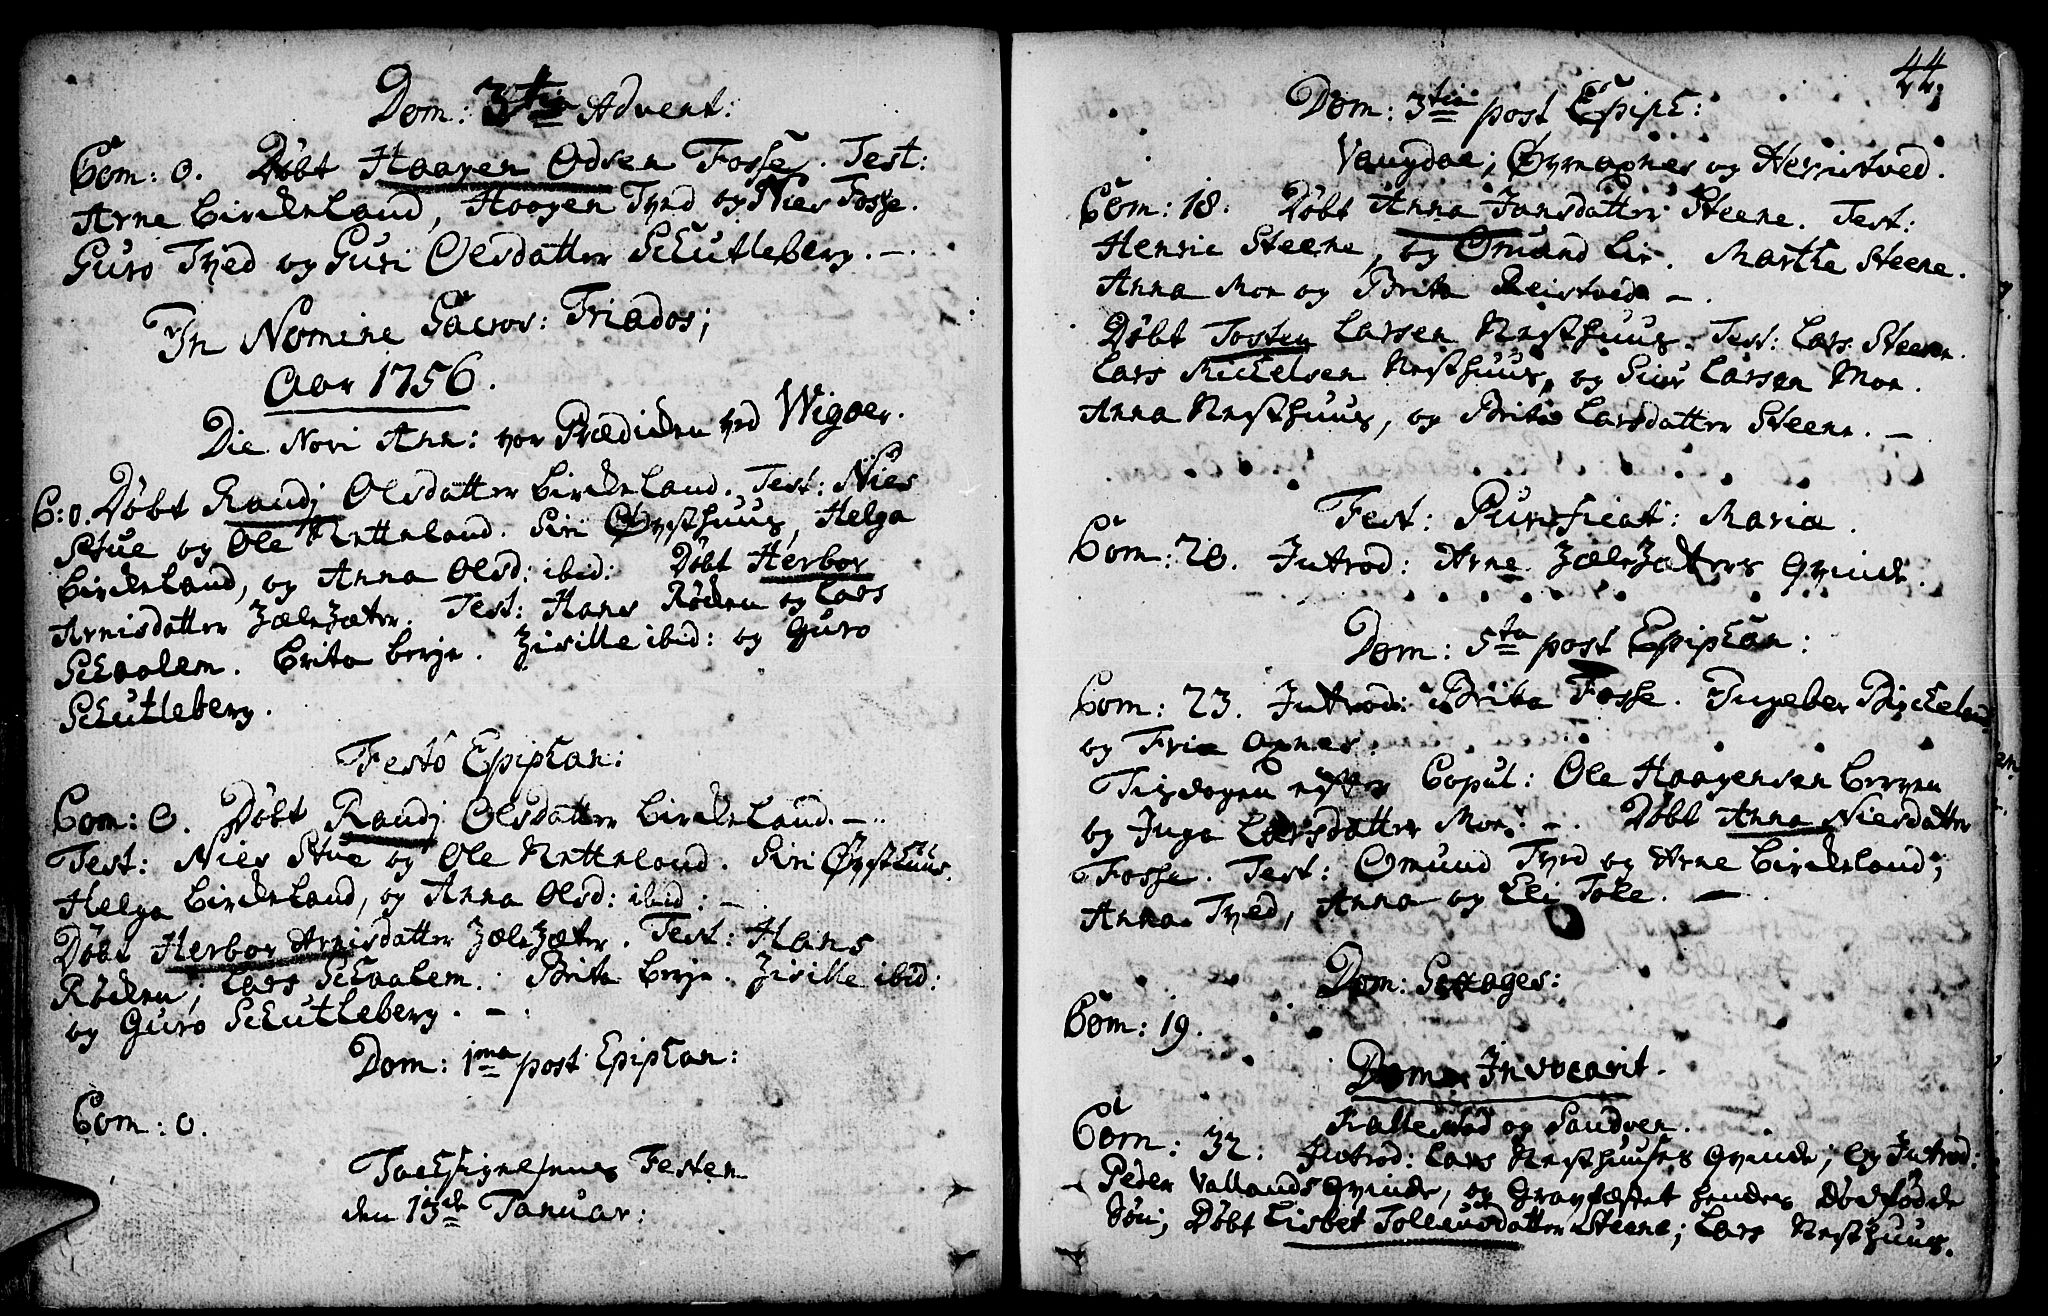 Dom: 3tia Advent:
Com: 0. Døbt Haagen Odsen Fosse. Test:
Arne Birckeland, Haagen Tved og Niels Fosse.
Guro Tved og Guri Olsdatter Schutleberg. –
In Nomine Sacros: Triados;
Aar 1756.
Die Novi Ann: var Prædicken ved Wigøer.
C: 0. Døbt Randj Olsdatter Birckeland. Test: Niels
Stue og Ole Netteland. Siri Øysthuus, Helga
Birckeland, og Anna Olsd: ibid: Døbt Herbor
Arnisdatter Zælezæter. Test: Hans Røcken og Lars
Schaalem. Brita Berje. Zisille ibid: og Guro
Schutleberg.
Festo Epiphan:
Com: 0. Døbt Randj Olsdatter Birckeland. –
Test: Niels Stue og Ole Netteland. Siri Øysthuus.
Helga Birckeland, og Anna Olsd: ibid: –
Døbt Herbor Arnisdatter Zælezæter. Test: Hans
Røcken, Lars Schaalem. Brita Berje. Zisille ibid:
og Guro Schutleberg. –
Dom: 1ma post Epiphan:
Com: 0.
Tacksigelsens Festen
den 13de Januar:
44
Dom: 3tia post Epiph:
Vangdae, Øyraxnes og Herristved.
Com: 18. Døbt Anna Jansdatter Steene. Test:
Henric Steene, og Omund Lie. Marthe Steene.
Anna Moe og Brita Reistved –.
Døbt Tosten Larsen Nesthuus. Test: Lars Steene.
Lars Mickelsen Nesthuus, og Siur Larsen Moe.
Anna Nesthuus, og Brita Larsdatter Steene. –
Fest: Purificat: Mariæ.
Com: 20. Introd: Arne Zælezæters Qvinde.
Dom: 5ta post Epiphan:
Com: 23. Introd: Brita Fosse. Ingebor Birckeland
og Fria Axnes.
Tisdagen efter Copul: Ole Haagensen Berven
og Inga Larsdatter Moe. – Døbt Anna Nielsdatter
Fosse. Test: Omund Tved og Arne Birckeland;
Anna Tved, Anna og Eli Toke. –
Dom: Septages:
Com: 19.
Dom: Invocavit.
Kallestad og Sandven.
Com: 32. Introd: Lars Nesthuuses Qvinde; og Introd:
Peder Vallands Qvinde, og Gravfæstet hendes Dødfødde
Søn; Døbt Lisbet Tollevsdatter Steene; Lars Nesthuus.